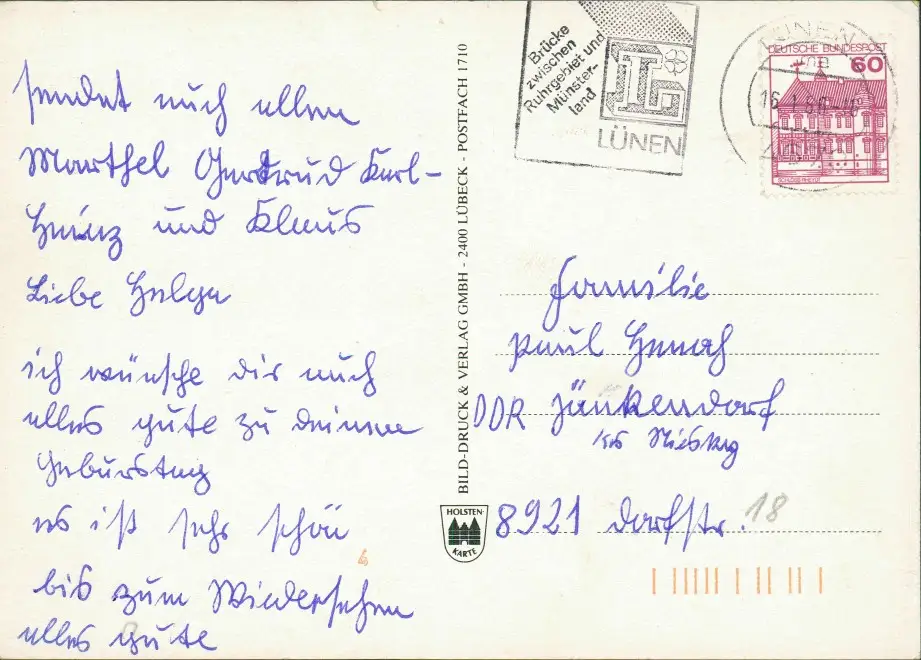 sendet auch allen
Marthel Gertrud Karl-
Heinz und Klaus
Liebe Helga
ich wünsche dir auch
alles gute zu deinen
Geburstag
es ist sehr schön
bis zum Wiedersehen
alles gute
BILD-DRUCK & VERLAG GMBH - 2400 LÜBECK - POSTFACH 1710
HOLSTEN-
KARTE
Brücke
zwischen
Ruhrgebiet und
Münster-
land
LÜNEN
LÜNEN
DEUTSCHE BUNDESPOST
60
SCHLOSS RHEYDT
Familie
Paul
DDR Jänkendorf
Krs Niesky
8921 Dorfstr. 18
4